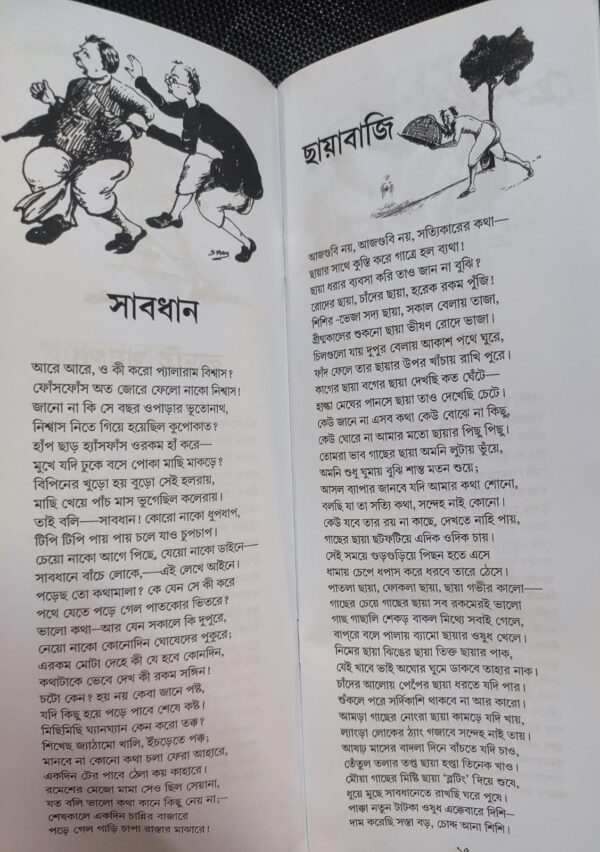 সাবধান
আরে আরে, ও কী করো প্যালারাম বিশ্বাস?
ফোঁসফোঁস অত জোরে ফেলো নাকো নিশ্বাস!
জানো না কি সে বছর ওপাড়ার ভূতোনাথ,
নিশ্বাস নিতে গিয়ে হয়েছিল কুপোকাত?
হাঁপ ছাড় হ্যাঁসফাঁস ওরকম হাঁ করে—
মুখে যদি ঢুকে বসে পোকা মাছি মাকড়ে?
বিপিনের খুড়ো হয় বুড়ো সেই হলরায়,
মাছি খেয়ে পাঁচ মাস ভুগেছিল কলেরায়।
তাই বলি—সাবধান! কোরো নাকো ধুপধাপ,
টিপি টিপি পায় পায় চলে যাও চুপচাপ।
চেয়ো নাকো আগে পিছে, যেয়ো নাকো ডাইনে—
সাবধানে বাঁচে লোকে,—এই লেখে আইনে।
পড়েছ তো কথামালা? কে যেন সে কী করে
পথে যেতে পড়ে গেল পাতকোর ভিতরে?
ভালো কথা—আর যেন সকালে কি দুপুরে,
নেয়ো নাকো কোনোদিন ঘোষেদের পুকুরে;
এরকম মোটা দেহে কী যে হবে কোনদিন,
কথাটাকে ভেবে দেখ কী রকম সঙ্গিন!
চটো কেন? হয় নয় কেবা জানে পষ্ট,
যদি কিছু হয়ে পড়ে পাবে শেষে কষ্ট।
মিছিমিছি ঘ্যানঘ্যান কেন করো তক্ক?
শিখেছ জ্যাঠামো খালি, ইঁচড়েতে পক্ক;
মানবে না কোনো কথা চলা ফেরা আহারে,
একদিন টের পাবে ঠেলা কয় কাহারে।
রমেশের মেজো মামা সেও ছিল সেয়ানা,
যত বলি ভালো কথা কানে কিছু নেয় না;—
শেষকালে একদিন চান্নির বাজারে
পড়ে গেল গাড়ি চাপা রাস্তার মাঝারে!
ছায়াবাজি
আজগুবি নয়, আজগুবি নয়, সত্যিকারের কথা—
ছায়ার সাথে কুস্তি করে গাত্রে হল ব্যথা!
ছায়া ধরার ব্যবসা করি তাও জান না বুঝি?
রোদের ছায়া, চাঁদের ছায়া, হরেক রকম পুঁজি!
শিশির-ভেজা সদ্য ছায়া, সকাল বেলায় তাজা,
গ্রীষ্মকালের শুকনো ছায়া ভীষণ রোদে ভাজা।
চিলগুলো যায় দুপুর বেলায় আকাশ পথে ঘুরে,
ফাঁদ ফেলে তার ছায়ার উপর খাঁচায় রাখি পুরে।
কাগের ছায়া বগের ছায়া দেখছি কত ঘেঁটে—
হাল্কা মেঘের পানসে ছায়া তাও দেখেছি চেটে।
কেউ জানে না এসব কথা কেউ বোঝে না কিছু,
কেউ ঘোরে না আমার মতো ছায়ার পিছু পিছু।
তোমরা ভাব গাছের ছায়া অমনি লুটায় ভুঁয়ে,
অমনি শুধু ঘুমায় বুঝি শান্ত মতন শুয়ে;
আসল ব্যাপার জানবে যদি আমার কথা শোনো,
বলছি যা তা সত্যি কথা, সন্দেহ নাই কোনো।
কেউ যবে তার রয় না কাছে, দেখতে নাহি পায়,
গাছের ছায়া ছটফটিয়ে এদিক ওদিক চায়।
সেই সময়ে গুড়গুড়িয়ে পিছন হতে এসে
ধামায় চেপে ধপাস করে ধরবে তারে ঠেসে।
পাতলা ছায়া, ফোকলা ছায়া, ছায়া গভীর কালো—
গাছের চেয়ে গাছের ছায়া সব রকমেই ভালো
গাছ গাছালি শেকড় বাকল মিথ্যে সবাই গেলে,
বাপ্‌রে বলে পালায় ব্যামো ছায়ার ওষুধ খেলে।
নিমের ছায়া ঝিঙের ছায়া তিক্ত ছায়ার পাক,
যেই খাবে ভাই অঘোর ঘুমে ডাকবে তাহার নাক।
চাঁদের আলোয় পেঁপের ছায়া ধরতে যদি পার।
শুঁকলে পরে সর্দিকাশি থাকবে না আর কারো।
আমড়া গাছের নোংরা ছায়া কামড়ে যদি খায়,
ল্যাংড়া লোকের ঠ্যাং গজাবে সন্দেহ নাই তায়।
আষাঢ় মাসের বাদলা দিনে বাঁচতে যদি চাও,
তেঁতুল তলার তপ্ত ছায়া হপ্তা তিনেক খাও।
মৌয়া গাছের মিষ্টি ছায়া ‘ব্লটিং’ দিয়ে শুষে,
ধুয়ে মুছে সাবধানেতে রাখছি ঘরে পুষে।
পাক্কা নতুন টাটকা ওষুধ এক্কেবারে দিশি—
দাম করেছি সস্তা বড়, চোদ্দ আনা শিশি।